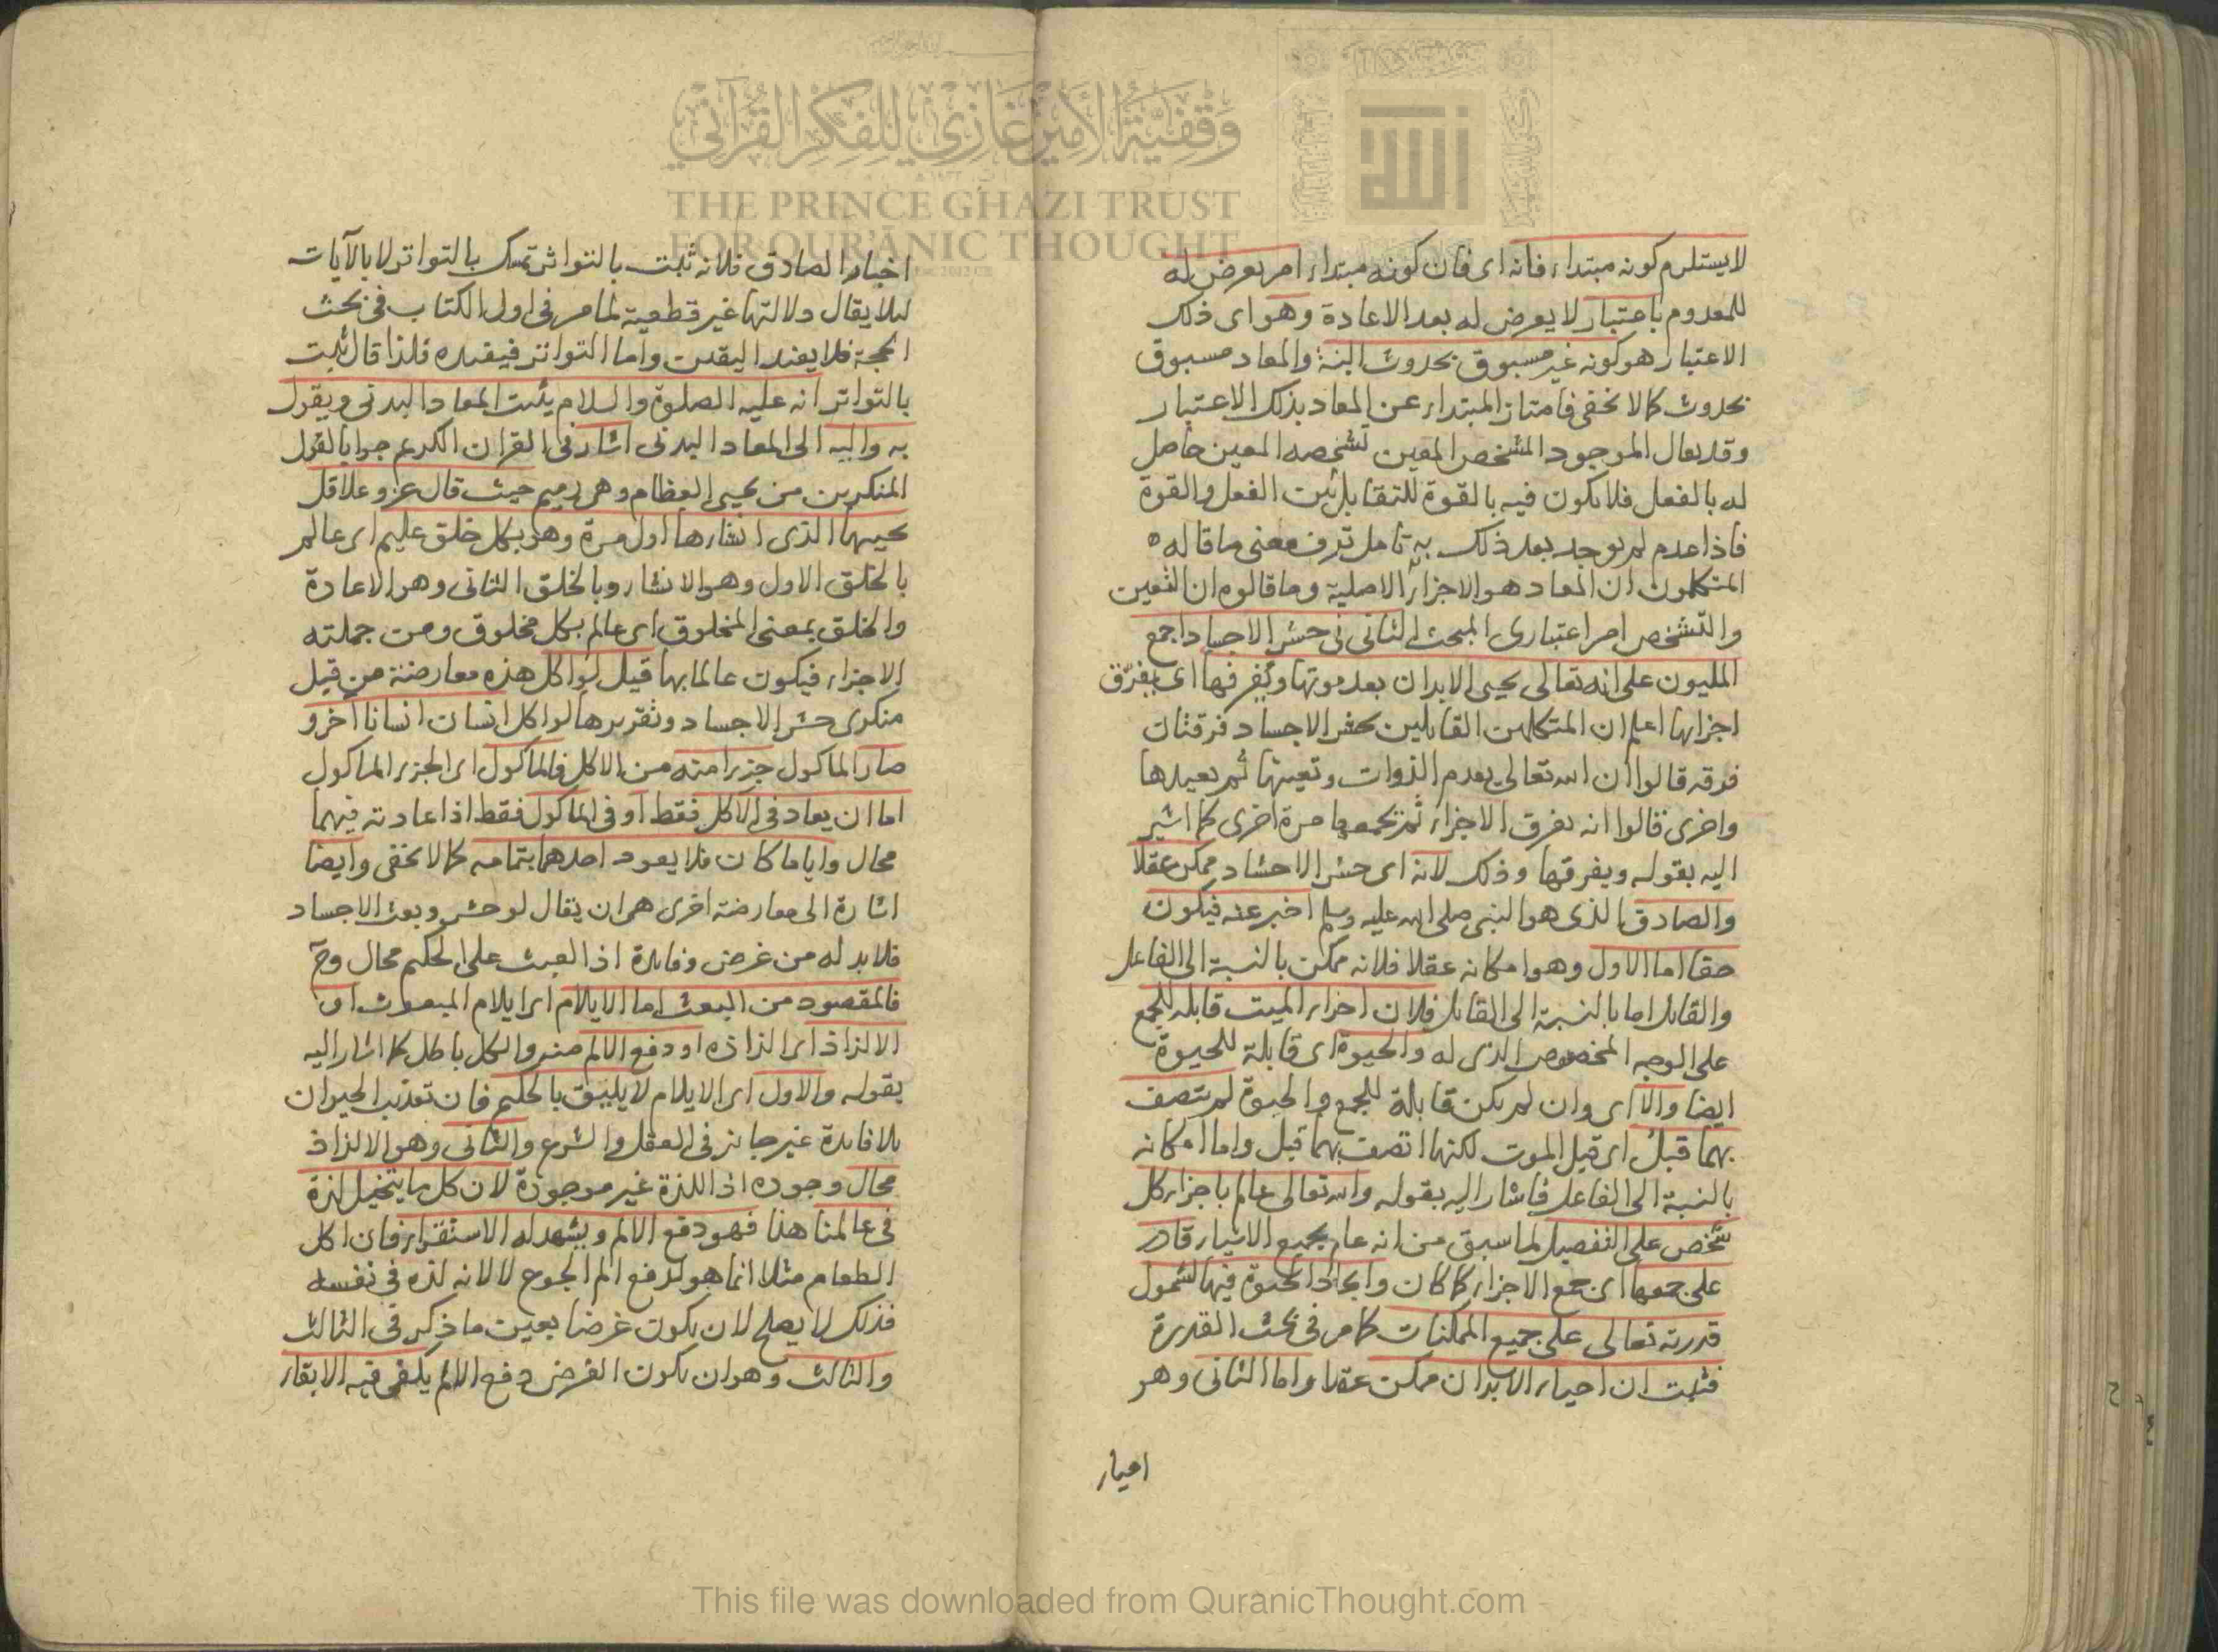 وقفية الأمير غازي للفكر القرآني
THE PRINCE GHAZI TRUST
FOR QUR'ĀNIC THOUGHT
الله
لا يستلزم كونه مبتداء فانه اى فان كونه مبتداء امر يعرض له
للمعدوم باعتبار لا يعرض له بعد الاعادة وهو اى ذلك
الاعتبار هو كونه غير مسبوق بحدوث البتة والمعاد مسبوق
بحدوث كما لا يخفى فامتاز المبتداء عن المعاد بذلك الاعتبار
وقد يقال الموجود المشخص المعين تشخصه المعين حاصل
له بالفعل فلا يكون فيه بالقوة للتقابل بين الفعل والقوة
فاذا عدم لم يوجد بعد ذلك به تأمل تدرف معنى ما قاله
المتكلمون ان المعاد هو الاجزاء الاصلية وما قالوه ان التعين
والتشخص امر اعتبارى المبحث الثانى فى حشر الاجساد اجمع
المليون على انه تعالى يحيى الابدان بعد موتها وتفرقها اى بتفرّق
اجزائها اعلم ان المتكلمين القايلين بحشر الاجساد فرقتان
فرقة قالوا ان الله تعالى يعدم الذوات وتعينها ثم يعيدها
واخرى قالوا انه يفرق الاجزاء ثم يجمعها مرة اخرى كما اشير
اليه بقوله ويفرقها وذلك لانه اى حشر الاحشاد ممكن عقلا
والصادق الذى هو النبى صلى الله عليه وسلم اخبر عنه فيكون
حقا اما الاول وهو امكانه عقلا فلانه ممكن بالنسبة الى الفاعل
والقابل اما بالنسبة الى القابل فلان اجزاء الميت قابلة للجمع
على الوجه المخصوص الذى له والحيوة اى قابلة للحيوة
ايضا والا اى وان لم يكن قابلة للجمع والحيوة لم يتصف
بهما قبل اى قبل الموت لكنها اتصف بهما قبل واما امكانه
بالنسبة الى الفاعل فاشار اليه بقوله والله تعالى عالم باجزاء كل
شخص على التفصيل لما سبق من انه عالم بجميع الاشياء قادر
على جمعها اى جمع الاجزاء كما كان وايجاد الحيوة فيها لشمول
قدرته تعالى على جميع الممكنات كما مر فى بحث القدرة
فثبت ان احياء الابدان ممكن عقلا واما الثانى وهو
اخبار
اخبار الصادق فلانه ثبت بالتواتر تمسك بالتواتر لا بالآيات
لئلا يقال دلالتها غير قطعية لما مر فى اول الكتاب فى بحث
الحجة فلا يفيد اليقين واما التواتر فيفيده فلذا قال ثبت
بالتواتر انه عليه الصلوة والسلام يثبت المعاد البدنى ويقول
به واليه الى المعاد البدنى اشار فى القران الكريم جوابا لقول
المنكرين من يحيى العظام وهى رميم حيث قال عز وعلا قل
يحييها الذى انشاءها اول مرة وهو بكل خلق عليم اى عالم
بالخلق الاول وهو الانشاء وبالخلق الثانى وهو الاعادة
والخلق بمعنى المخلوق اى عالم بكل مخلوق ومن جملته
الاجزاء فيكون عالما بها قيل لو اكل هذه معارضة من قبل
منكرى حشر الاجساد وتقريرها لو اكل انسان انسانا آخر و
صار الماكول جزءا منه من الاكل فالماكول اى الجزء الماكول
اما ان يعاد فى الاكل فقط او فى الماكول فقط اذ اعادته فيهما
محال واياما كان فلا يعود احدهما بتمامه كما لا يخفى وايضا
اشارة الى معارضة اخرى هى ان يقال لو حشر وبعث الاجساد
فلابد له من غرض وفايدة اذ العبث على الحكيم محال وح
فالمقصود من البعث اما الايلام اى ايلام المبعوث او
الالذاذ اى الذاذه او دفع الالم منه والكل باطل كما اشار اليه
بقوله والاول اى الايلام لا يليق بالحكيم فان تعذيب الحيوان
بلا فايدة غير جايز فى العقل والشرع والثانى وهو الالذاذ
محال وجوده اذ اللذة غير موجودة لان كل ما يتخيل لذة
فى عالمنا هذا فهو دفع الالم ويشهد له الاستقراء فان اكل
الطعام مثلا انما هو لدفع الم الجوع لا لانه لذة فى نفسه
فذلك لا يصلح لان يكون غرضا بعين ما ذكر فى الثالث
والثالث وهو ان يكون الغرض دفع الالم يكفى فيه الابقاء
This file was downloaded from QuranicThought.com